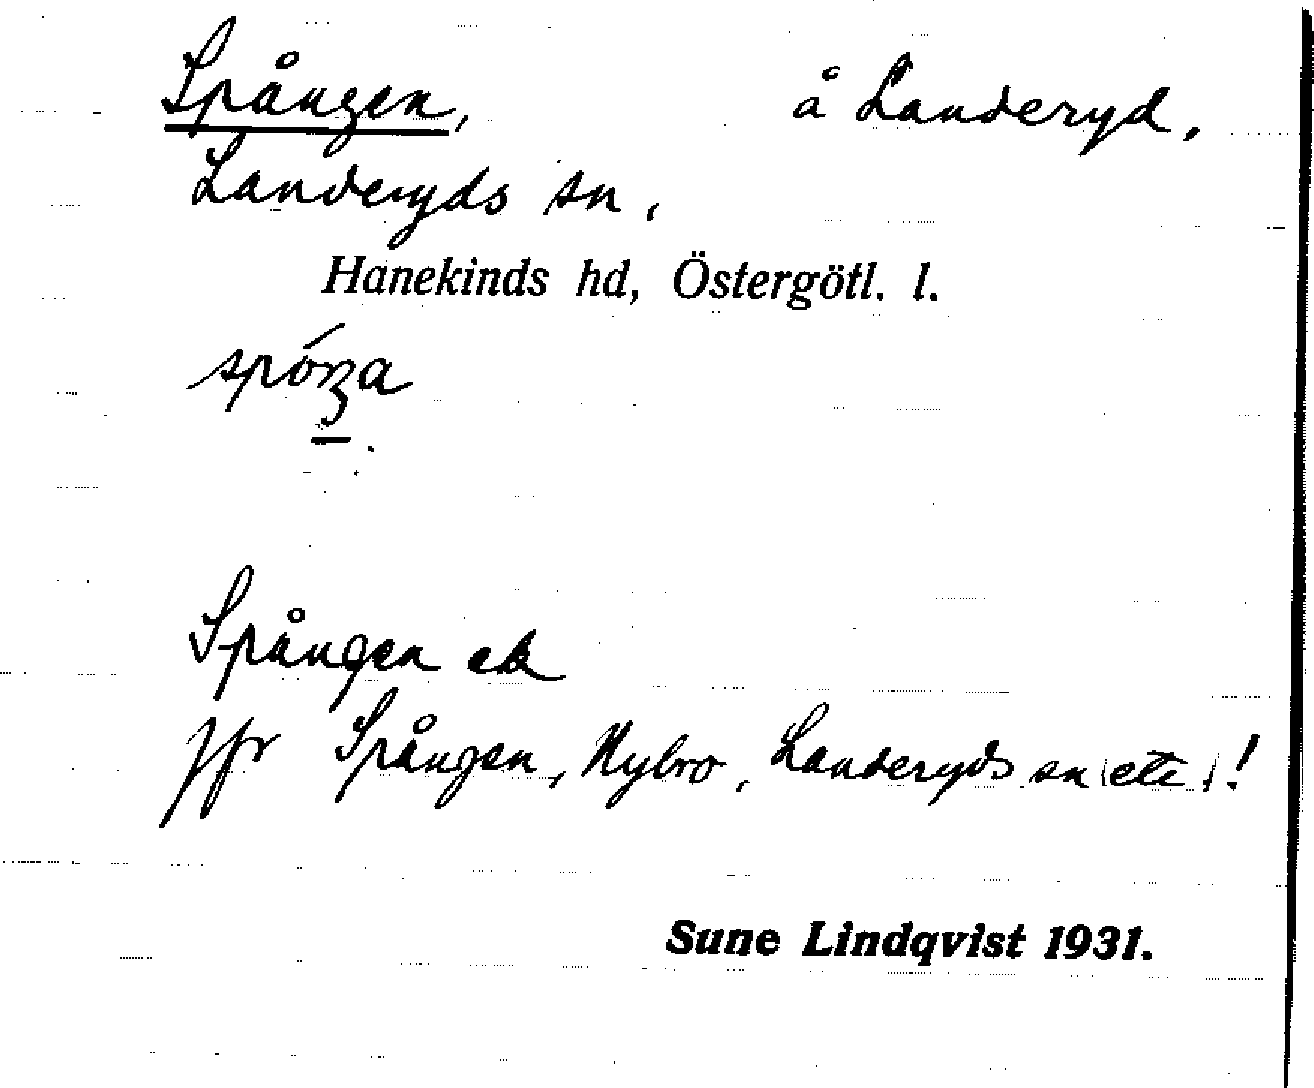 Spången, å Landeryd,
Landeryds sn,
Hanekinds hd, Östergötl. l.
Spången ek
jfr Spången, Nybro, Landeryds sn etc.!
Sune Lindqvist 1931.